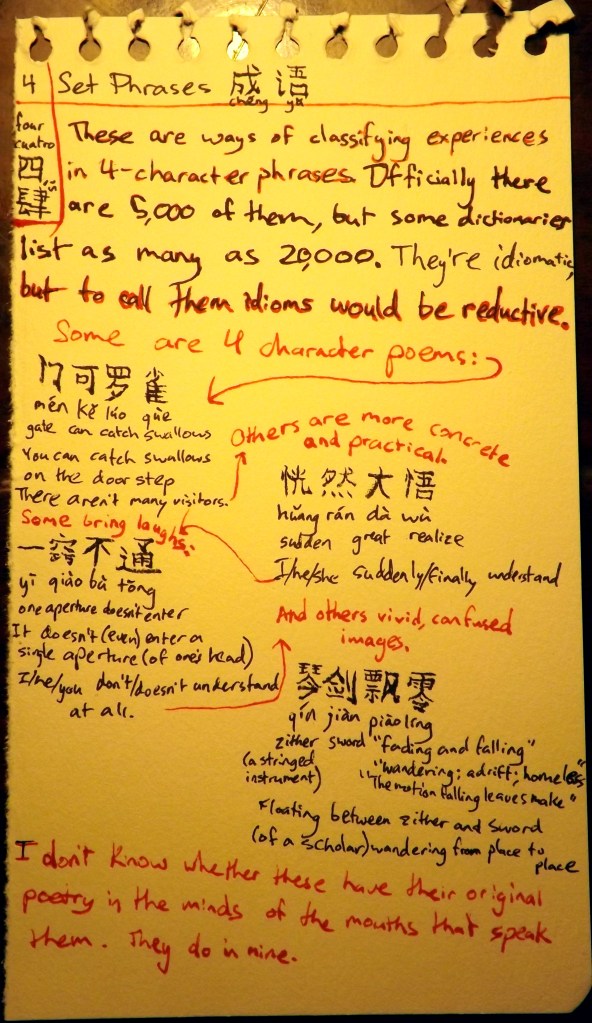 4 Set Phrases 成语
chéng yǔ
four
cuatro
四
sì
肆
These are ways of classifying experiences
in 4-character phrases. Officially there
are 5,000 of them, but some dictionaries
list as many as 20,000. They're idiomatic,
but to call them idioms would be reductive.
Some are 4 character poems:
门可罗雀
mén kě luó què
gate can catch swallows
You can catch swallows
on the door step
There aren't many visitors.
Others are more concrete
and practical.
恍然大悟
huǎng rán dà wù
sudden great realize
I/he/she suddenly/finally understand
Some bring laughs:
一窍不通
yī qiào bù tōng
one aperture doesn't enter
It doesn't (even) enter a
single aperture (of one's head)
I/he/you don't/doesn't understand
at all.
And others vivid, confused
images.
琴剑飘零
qín jiàn piāo líng
zither sword "fading and falling"
(a stringed
instrument)
"wandering; adrift; homeless"
"The motion falling leaves make"
Floating between zither and sword
(of a scholar) wandering from place to
place
I don't know whether these have their original
poetry in the minds of the mouths that speak
them. They do in mine.